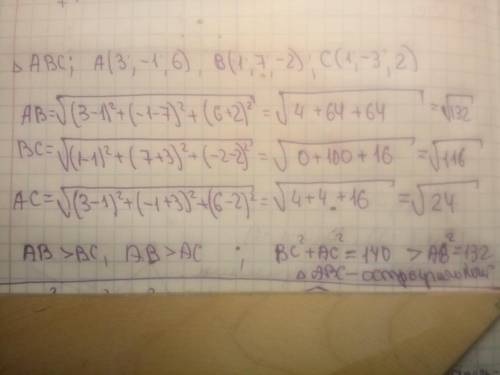 △ ABC; A(3, -1, 6), B(1, 7, -2), C(1, -3, 2)
AB=√(3-1)²+(-1-7)²+(6+2)² = √4+64+64 = √132
BC=√(1-1)²+(7+3)²+(-2-2)² = √0+100+16 = √116
AC=√(3-1)²+(-1+3)²+(6-2)² = √4+4+16 = √24
AB > BC, AB > AC ; BC²+AC² = 140 > AB² = 132
△ ABC -